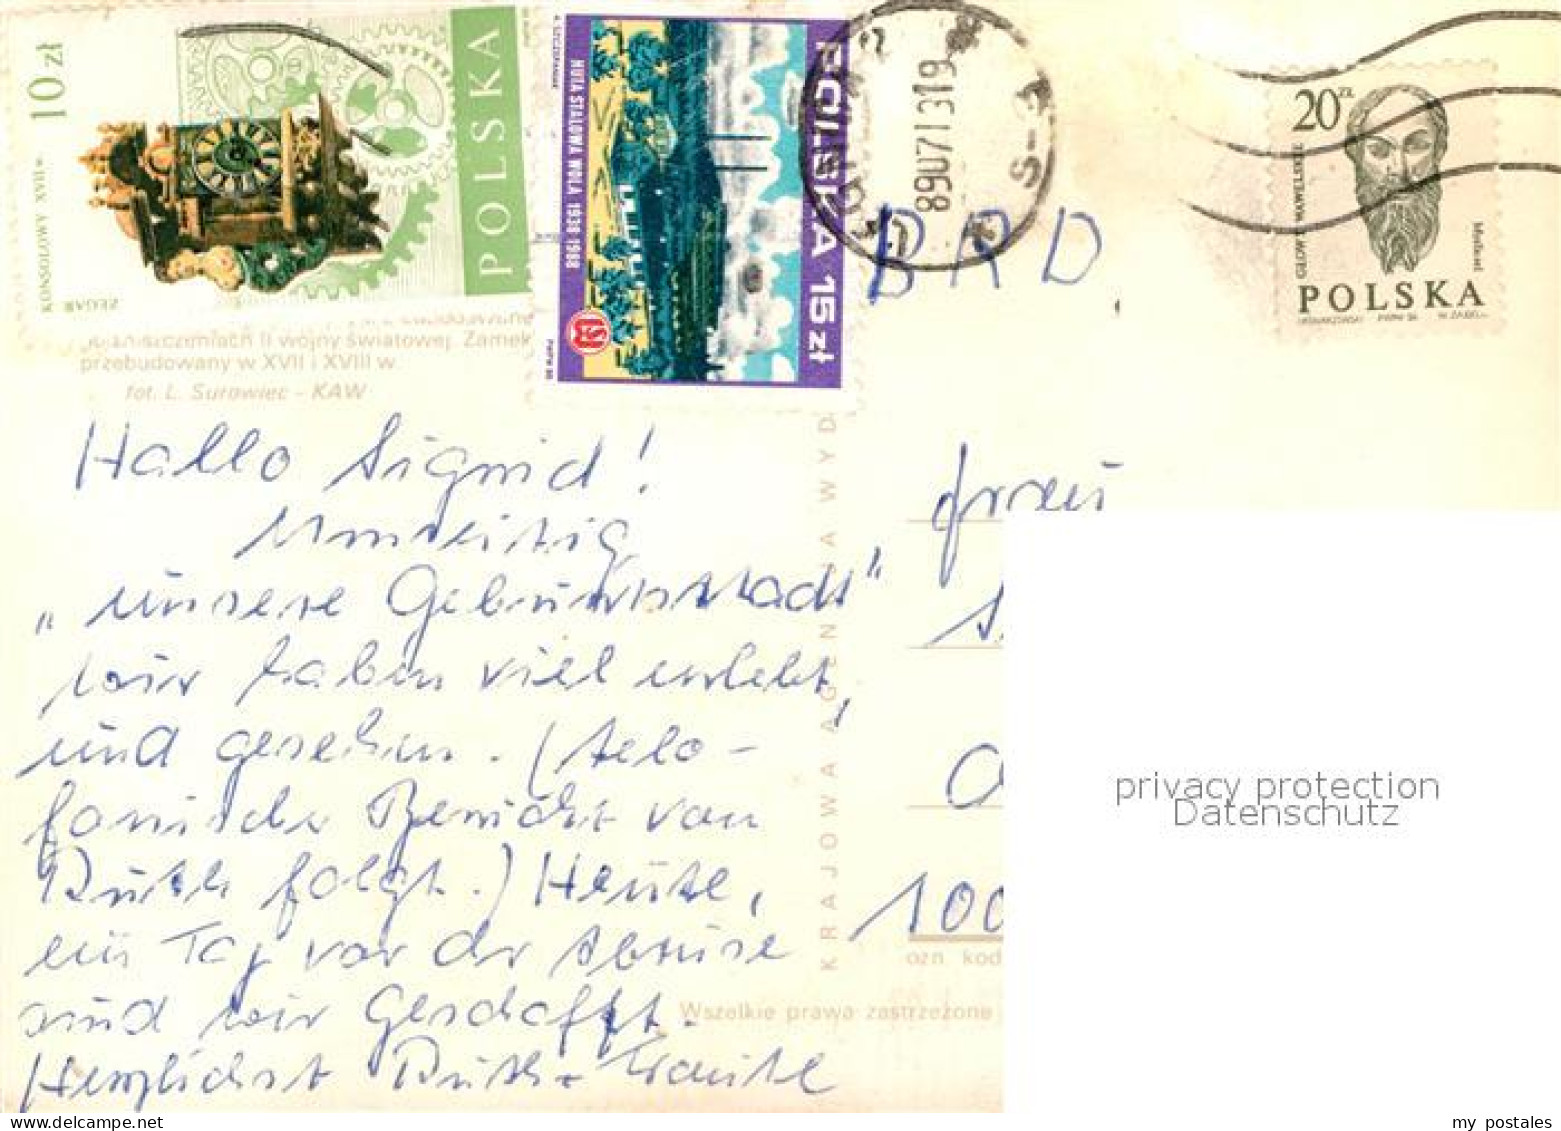 10 zł
KONSOLOWY XVII w.
ZEGAR
POLSKA
A. SZCZEPANIAK
HUTA STALOWA WOLA 1938-1988
POLSKA 15 zł
PWPW 88
89071319
S-5
20 ZŁ
GŁOWY WAWELSKIE
POLSKA
PWPW 86
BRD
II wojny światowej. Zamek
przebudowany w XVII i XVIII w.
fot. L. Surowiec - KAW
Hallo Sigrid!
„unsere Geburtsstadt"
wir haben viel erlebt,
und gesehen. (telo-
fonischer Bericht von
Ruth folgt.) Heute,
ein Tag vor der Abreise
sind wir geschafft.
Herzlichst Ruth +
KRAJOWA AGENCJA WYD
Frau
100
ozn kod
Wszelkie prawa zastrzeżone
privacy protection
Datenschutz
my postales